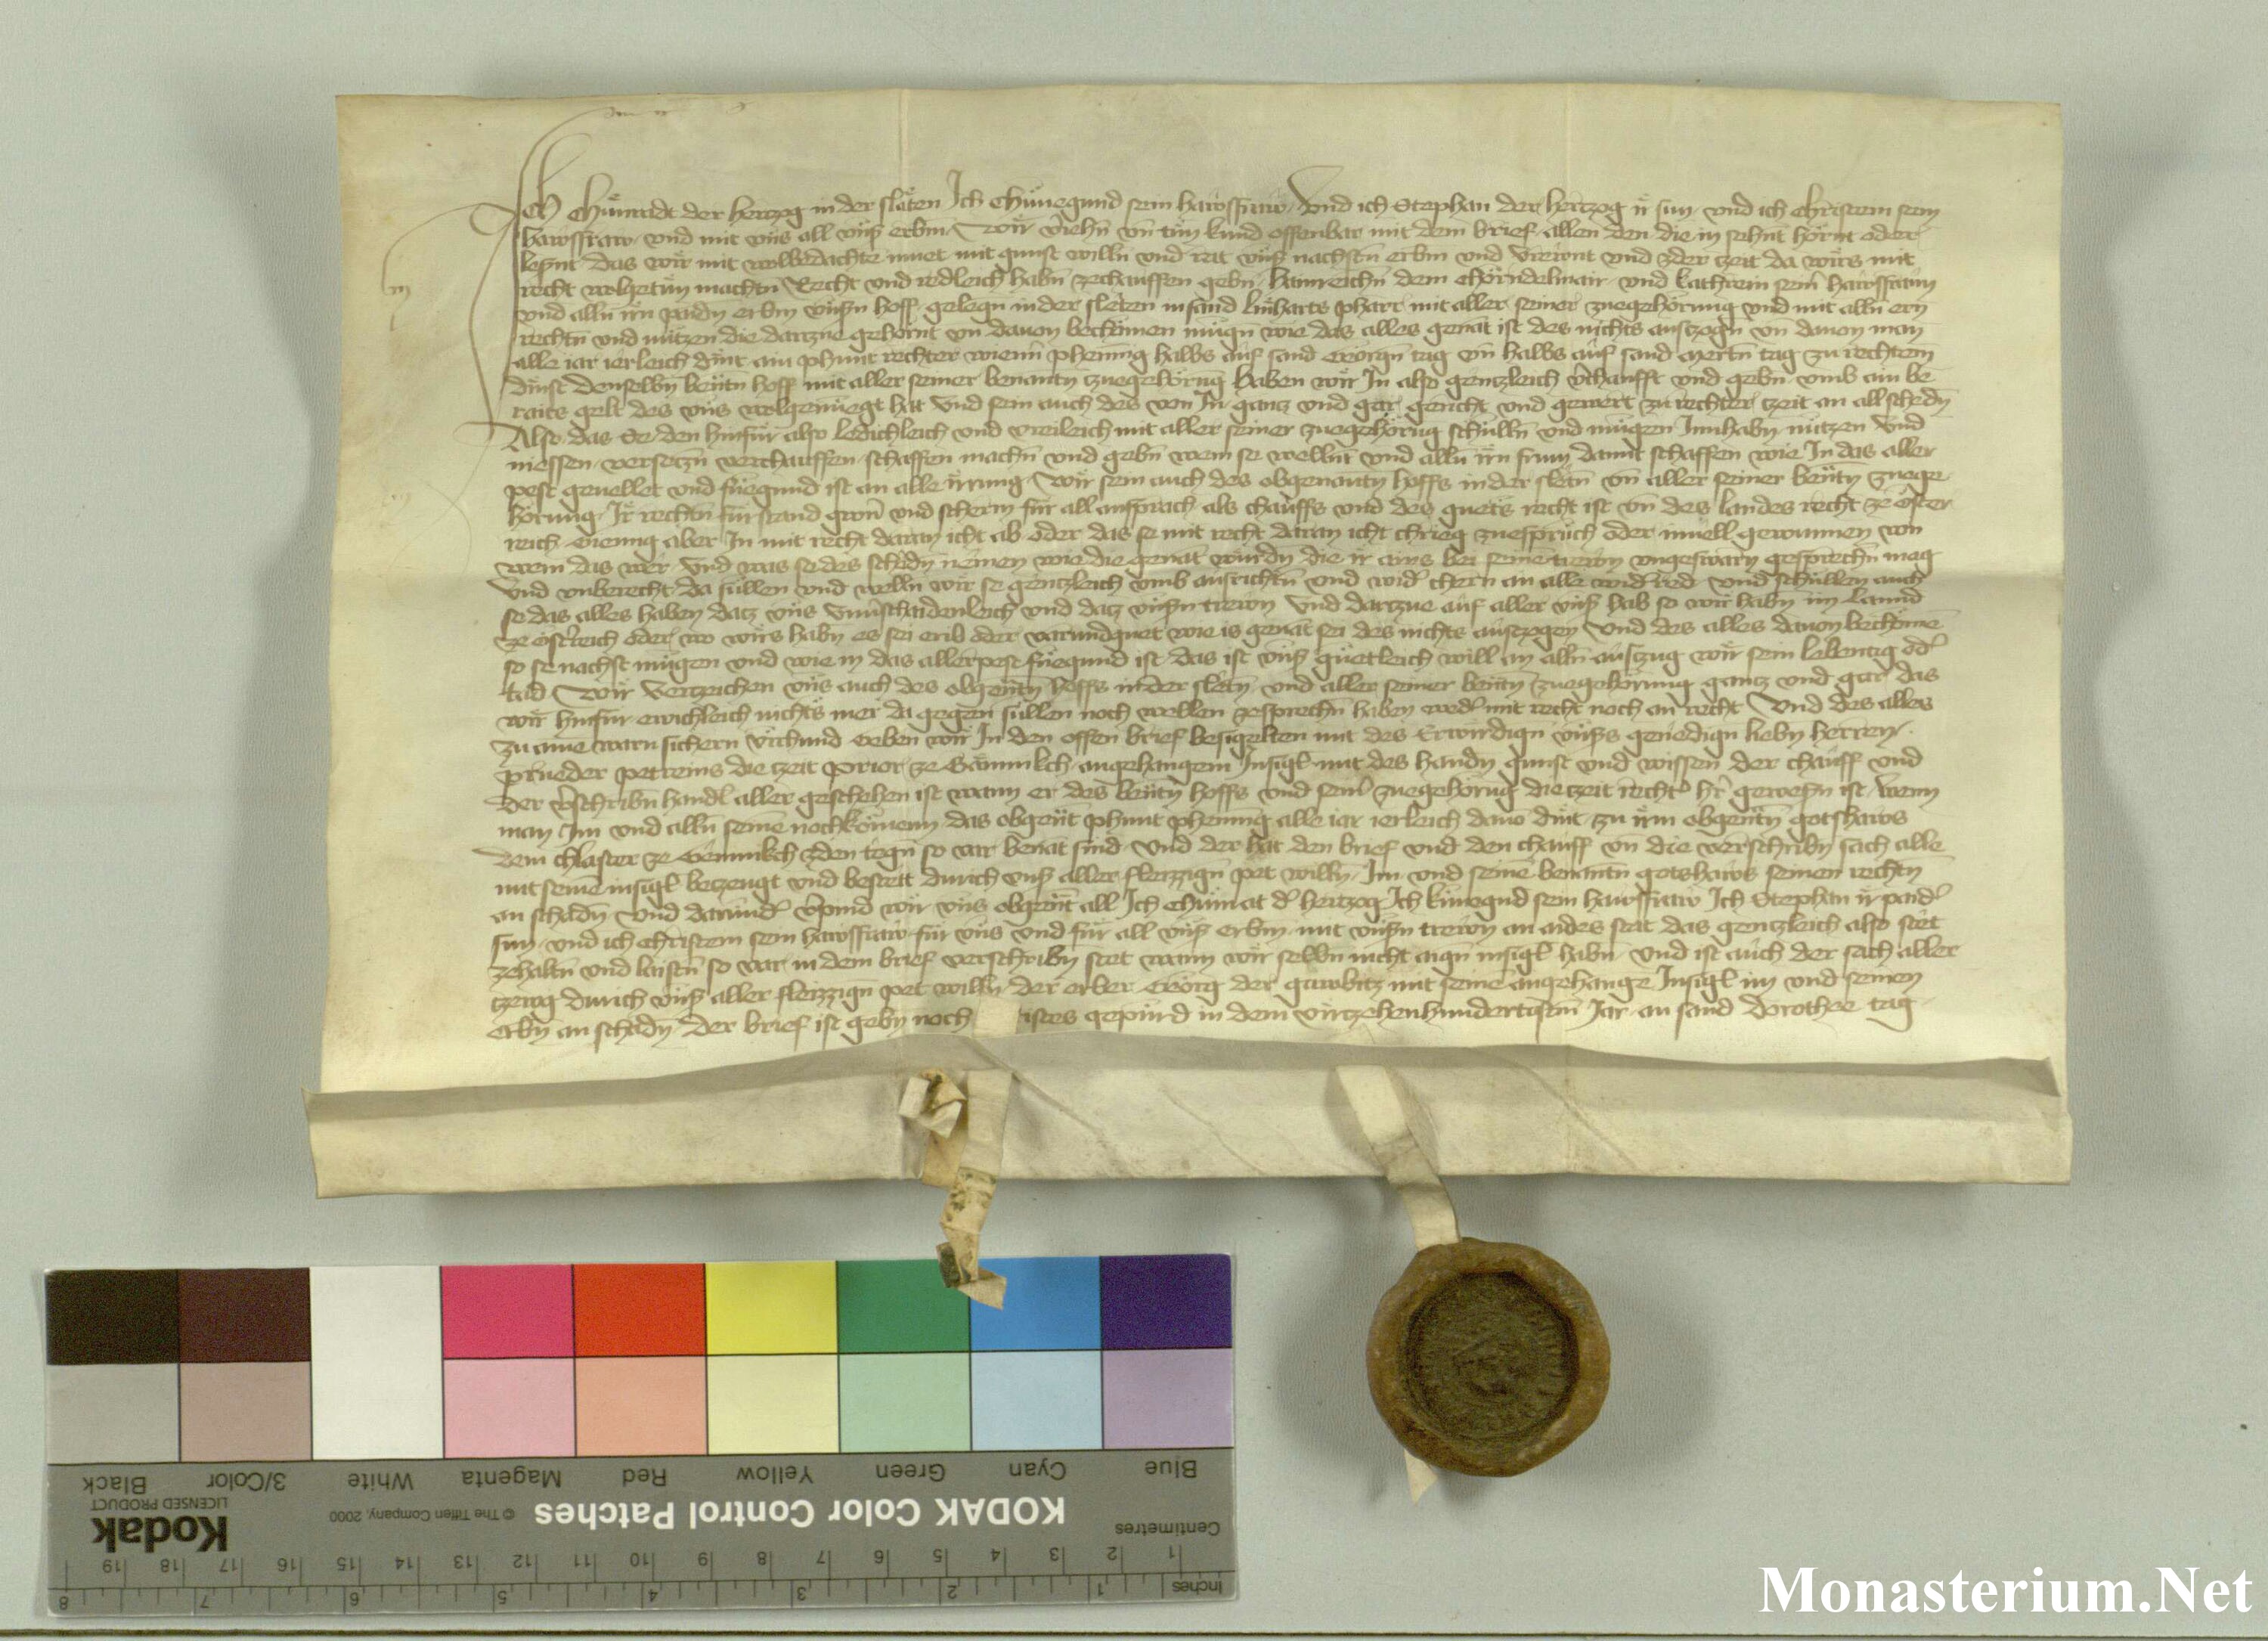 Ich Chunradt der hertzog in der slöten Ich Chünegund sein hawsfraw Und ich Stephan der hertzog ir sun und ich Christein sein
hawsfraw und mit uns all uns erbin Wir veriehn un tun kund offenbar mit dem brief allen den die in sehnt hörnt oder
lesnt das wir mit wolbedachte muet mit gunst willn und rat uns nachstn erbin und vrewnt und zder tzeit da wirs mit
recht wolgetun machtn Recht und redleich habn zechauffen gebn hainreichn dem chörndelmair und kathrein sein hawsfrawn
und alln irn paidn erbin unsn hoff gelegn in der sleten in sand linharts pharr mit aller seiner zuegehörung und mit alln ern
rechtn und nützen die dartzue gehörnt un davon bechömen mügn wie das alles genat ist des nichts austzogn un davon man
alle iar ierleich dint ain phunt rechter wienn phening halbs auf sand Giorgn tag un halbs auf sand mertn tag zu rechtem
dinst denselbn benntn hoff mit aller seiner benantn tzuegehörug haben wir In also gentzleich vchaufft und gebn umb ain be
raits gelt des uns wolgenuegt hat Und sein auch des von In gantz und gar gericht und gewert zu rechter tzeit an all schedn
Also das Se den hinfür also ledichleich und vreileich mit aller seiner zuegehörug schulln und mügen Innhabn nutzen Und
niessen versetzn verchauffen schaffen machn und gebn wem se wellnt und alln irn frum damit schaffen wie In das aller
pest gevellet und fuegund ist an alle irrung Wir sein auch des obgenantn hoffs in der sletn un aller seiner bentn zuege
hörung Ir rechtn fürstand gwern und scherm für all ansprach als chauffs und des guets recht ist un des landes recht ze öster
reich Gieng aber In mit recht daran icht ab oder das se mit recht daran icht chrieg zuespruch oder invell gewunnen von
wem das wer und was se des schadn nemen wie die genat wurdn die ir ains bei seine trewn ungeswarn gesprechn mag
Und unberecht da süllen und welln wir se gentzleich umb ausrichtn und wider chern an alle widerred und schüllen auch
se das alles haben datz uns unverschaidenleich und datz unsn trewn Und dartzue auf aller uns hab so wir habn im lannd
ze österreich oder wo wirs habn es sei erib oder varundguet wie is genat sei des nichts austzogen Und des alles davon bechöme
so se nachst mügen und wie in das allerpest fuegund ist das ist uns guetleich will an alln austzug wir sein lebentig oder
tod Wir vertzeichen uns auch des obgentn hoffs in der sletn und aller seiner bentn zuegehörung gantz und gar das
wir hinfür ewichleich nichts mer da gegen süllen noch wellen zesprechn haben weder mit recht noch an recht Und des alles
zu aine warn sichern urchund Geben wir In den offen brief besigelten mit des Erwirdign unsers genedign liebn herren
prueder petreins die tzeit prior ze Gämmikch angehangem Insigl mit des handn gunst und wissen der chauff und
der vschribn handl aller geschehen ist wann er des bentn hoffs und seiner zuegehörug die tzeit rechter her gewesn ist Wenn
man Im und alln seine nochkömenn das obgent phunt phening alle iar ierleich davo dint zu irm obgentn gotshaws
dem chlaster ze Gemmikch zden tegn so var benat sind Und der hat den brief und den chauff un die verschribn sach alle
mit seine insigl betzeugt und bestett durich uns aller fleizzign pet willn Im und seine benantn gotshaws seinen rechtn
an schadn Und darunder vpind wir uns obgent all Ich Chunrat der hertzog Ich künegud sein hawsfraw Ich Stephan ir paider
sun und ich christein sein hawsfraw für uns und für all uns erbin mit unsn trewn an aides stat das gentzleich also stet
zehaltn und laistn so var in dem brief verschribn stet wann wir selbn nicht aign insigl habn Und ist auch der sach aller
tzewg durich uns aller fleizzign pet willn der erber Giörg der gawbitz mit seine angehange Insigl im und seinen
erbn an schadn Der brief ist gebn noch istes gepurd in dem virtzehenhundertistm Jar an sand dorothee tag
KODAK Color Control Patches
Kodak
LICENSED PRODUCT
© The Tiffen Company, 2000
Blue Cyan Green Yellow Red Magenta White 3/Color Black
Centimetres
1 2 3 4 5 6 7 8 9 10 11 12 13 14 15 16 17 18 19
Inches 1 2 3 4 5 6 7 8
Monasterium.Net